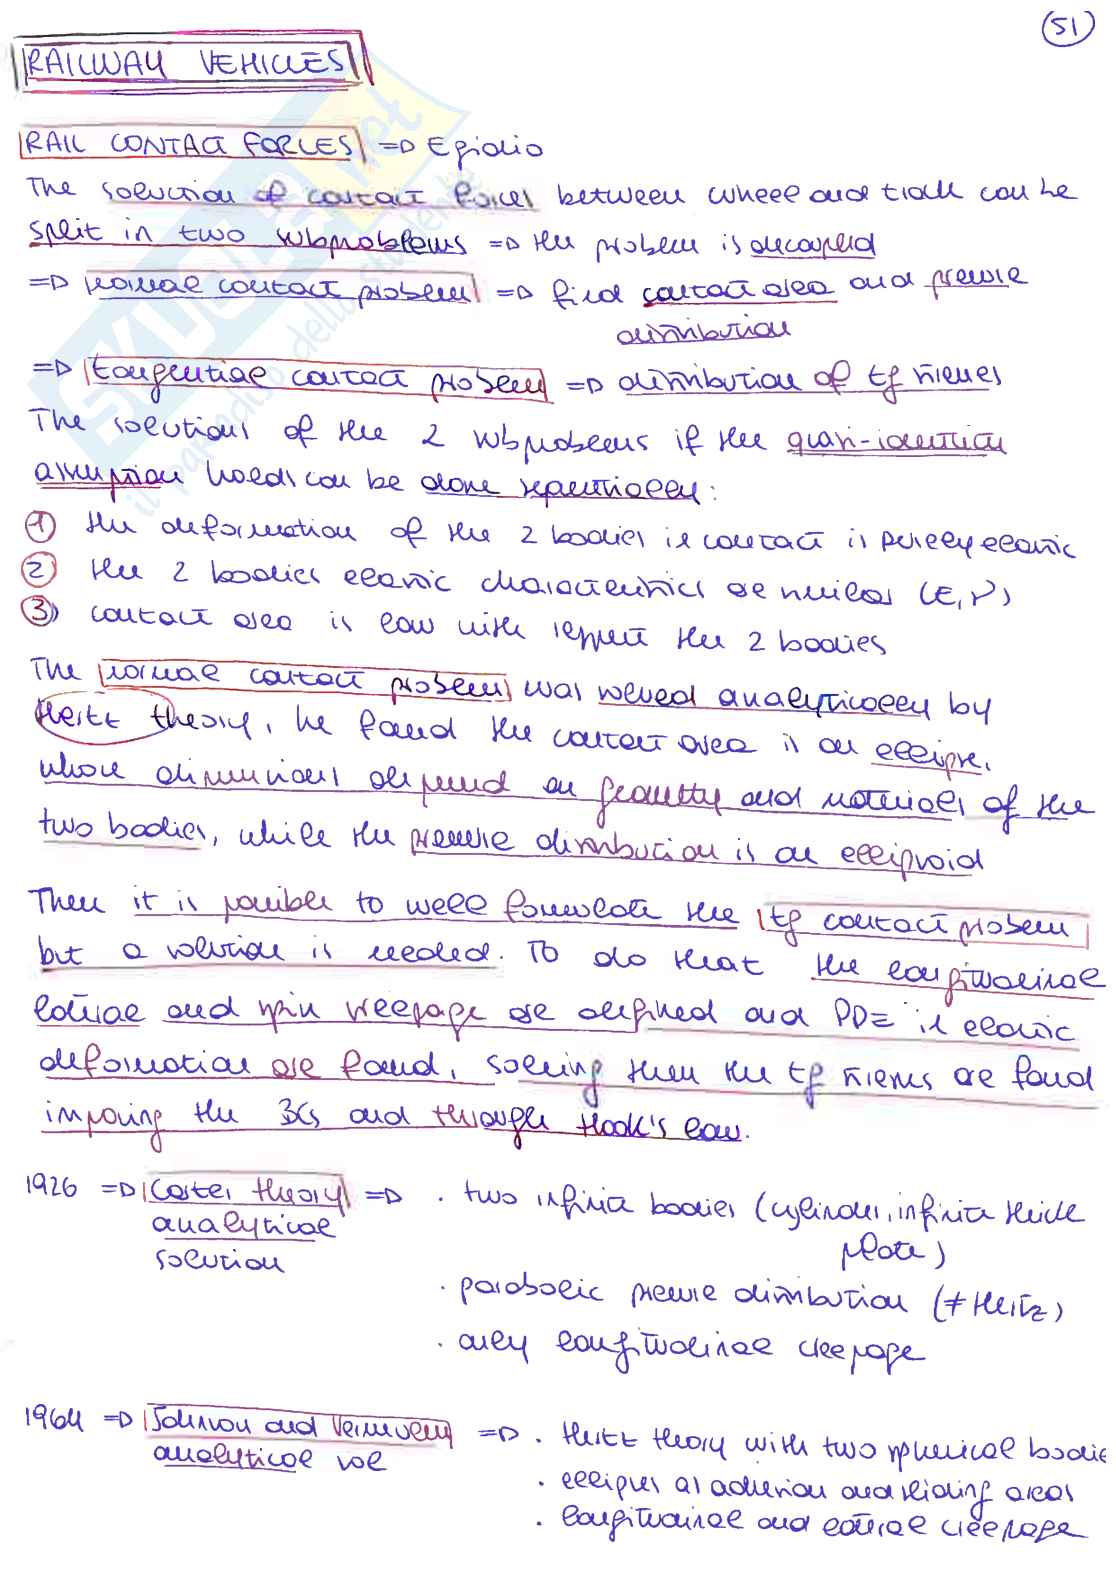 51
RAILWAY VEHICLES
RAIL CONTACT FORCES => Egidio
The solution of contact forces between wheel and track can be
split in two subproblems => the problem is decoupled
=> normal contact problem => find contact area and pressure
distribution
=> tangential contact problem => distribution of tg stresses
The solutions of the 2 subproblems if the quasi-identity
assumption holds can be done sequentially:
1 the deformation of the 2 bodies in contact is purely elastic
2 the 2 bodies elastic characteristics are similar (E, ν)
3) contact area is low with respect the 2 bodies
The normal contact problem was solved analytically by
Hertz theory, he found the contact area is an ellipse,
whose dimensions depend on geometry and materials of the
two bodies, while the pressure distribution is an ellipsoid
Then it is possible to well formulate the tg contact problem
but a solution is needed. To do that the longitudinal
lateral and spin creepage are defined and PDE in elastic
deformation are found, solving them the tg stresses are found
imposing the BCs and through Hook's law.
1926 => Carter theory => · two infinite bodies (cylinder, infinite thick
analytical plate)
solution
· parabolic pressure distribution (≠ Hertz)
· only longitudinal creepage
1964 => Johnson and Vermeulen => · Hertz theory with two spherical bodie
analytical sol
· ellipses as adhesion and sliding areas
· longitudinal and lateral creepage